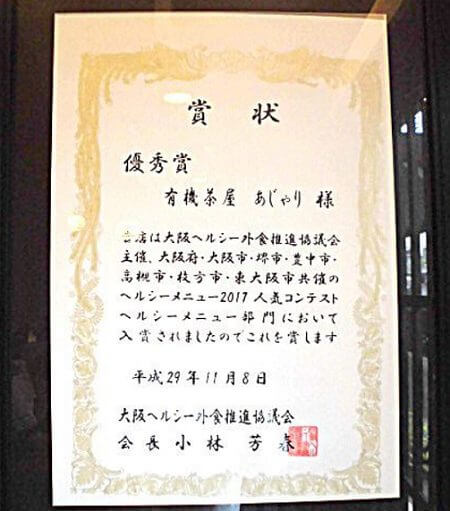 賞状
優秀賞
有機茶屋 あじゃり 様
貴店は大阪ヘルシー外食推進協議会
主催、大阪府・大阪市・堺市・豊中市・
高槻市・枚方市・東大阪市共催の
ヘルシーメニュー2017人気コンテスト
ヘルシーメニュー部門において
入賞されましたのでこれを賞します
平成29年11月8日
大阪ヘルシー外食推進協議会
会長 小林 芳春